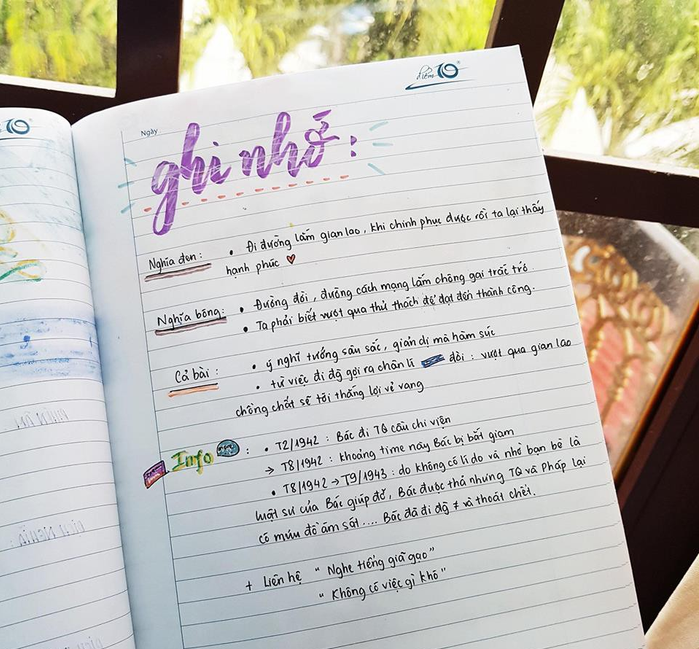 điểm 10
Ngày
ghi nhớ :
Nghĩa đen : • Đi đường lắm gian lao, khi chinh phục được rồi ta lại thấy
hạnh phúc ♡
Nghĩa bóng: • Đường đời, đường cách mạng lắm chông gai trắc trở.
• Ta phải biết vượt qua thử thách để đạt đến thành công.
Cả bài : • ý nghĩ tưởng sâu sắc, giản dị mà hàm súc
• từ việc đi đg gợi ra chân lí đời : vượt qua gian lao
chồng chất sẽ tới thắng lợi vẻ vang
Info : • T2/1942 : Bác đi TQ cầu chi viện
→ T8/1942 : khoảng time này Bác bị bắt giam
• T8/1942 → T9/1943 : do không có lí do và nhờ bạn bè là
luật sư của Bác giúp đỡ, Bác được thả nhưng TQ và Pháp lại
có mưu đồ ám sát.... Bác đã đi đg ≠ và thoát chết.
+ Liên hệ " Nghe tiếng giã gạo"
" Không có việc gì khó"